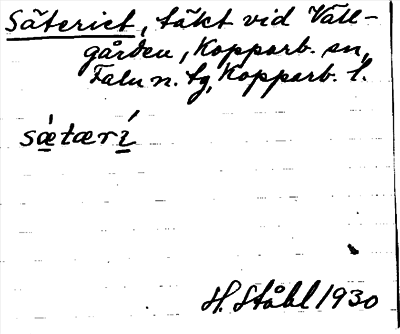 Säteriet, täkt vid Vall-
gården, Kopparb. sn,
Falu n. tg, Kopparb. l.
sǽtærí
H. Ståhl 1930